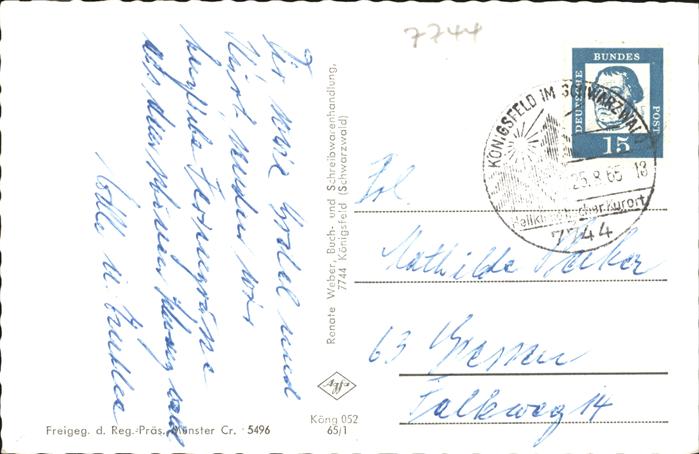 7744
DEUTSCHE
BUNDES
POST
15
KÖNIGSFELD IM SCHWARZWALD
25.8.65-18
Heilklimatischer Kurort
7744
Frl.
Mathilde Becker
63 Giessen
Falkweg 14
Dir sowie Gretel und
senden wir
herzliche Feriengrüsse
aus dem schönen Schwarzwald
Renate Weber, Buch- und Schreibwarenhandlung,
7744 Königsfeld (Schwarzwald)
Agfa
Köng 052
65/1
Freigeg. d. Reg.-Präs. Münster Cr. 5496